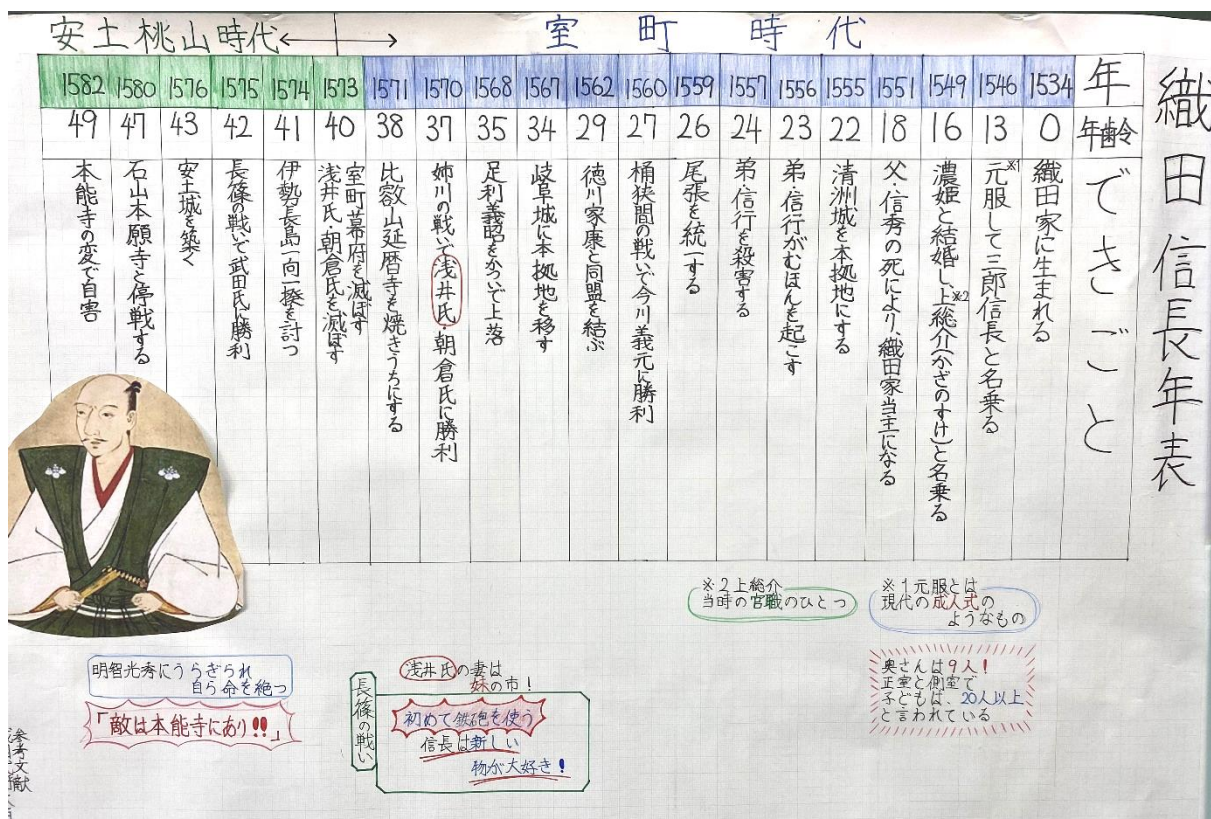 織田信長年表
室町時代
安土桃山時代
年
年齢
できごと
1534
0
織田家に生まれる
1546
13
元服して三郎信長と名乗る
※1
1549
16
濃姫と結婚し、上総介(かざのすけ)と名乗る
※2
1551
18
父・信秀の死により、織田家当主になる
1555
22
清洲城を本拠地にする
1556
23
弟・信行がむほんを起こす
1557
24
弟・信行を殺害する
1559
26
尾張を統一する
1560
27
桶狭間の戦いで今川義元に勝利
1562
29
徳川家康と同盟を結ぶ
1567
34
岐阜城に本拠地を移す
1568
35
足利義昭をかついで上落
1570
37
姉川の戦いで浅井氏・朝倉氏に勝利
1571
38
比叡山延暦寺を焼きうちにする
1573
40
室町幕府を滅ぼす
浅井氏・朝倉氏を滅ぼす
1574
41
伊勢長島一向一揆を討つ
1575
42
長篠の戦いで武田氏に勝利
1576
43
安土城を築く
1580
47
石山本願寺と停戦する
1582
49
本能寺の変で自害
※1元服とは
現代の成人式の
ようなもの
※2上総介
当時の官職のひとつ
奥さんは9人!
正室と側室で
子どもは、20人以上
と言われている
浅井氏の妻は
妹の市!
長篠の戦い
初めて鉄砲を使う
信長は新しい
物が大好き!
明智光秀にうらぎられ
自ら命を絶つ
「敵は本能寺にあり!!」
参考文献